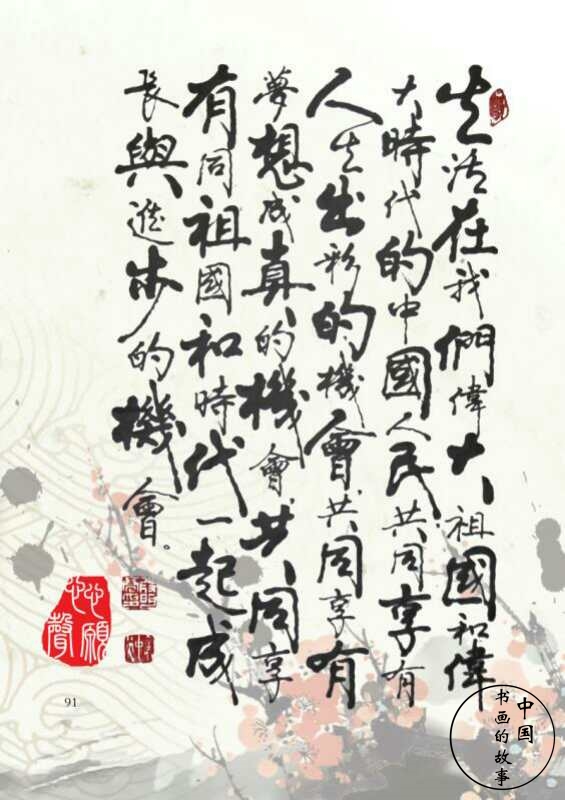 生活在我們偉大祖國和偉
大時代的中國人民共同享有
人生出彩的機會共同享有
夢想成真的機會共同享
有同祖國和時代一起成
長與進步的機會。
心願心聲
91
中国
书画的故事